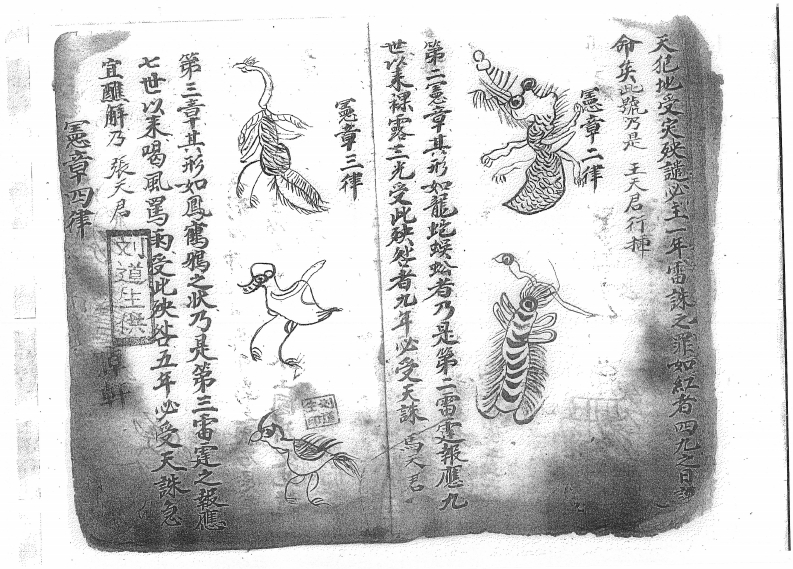 天犯地受灾殃譴必主一年雷誅之罪如紅者四九之日
命矣此號乃是 王天君行
憲章二律
第二憲章其形如龍蛇蜈蚣者乃是第二雷霆報應九
世以来裸露三光受此殃咎者九年必受天誅 馬天君
憲章三律
第三章其形如鳳鶴鴉之状乃是第三雷霆之報應
七世以来喝風罵雨受此殃咎五年必受天誅急
宜醮解乃 張天君
刘道生
軒
憲章四律